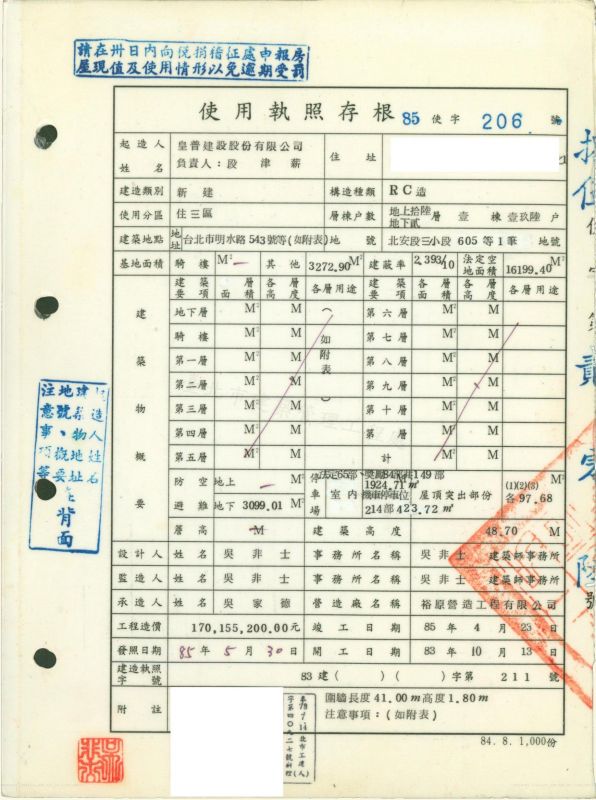 請在卅日內向稅捐稽征處申報房
屋現值及使用情形以免逾期受罰
使用執照存根 85 使字 206 號
起造人姓名 皇普建設股份有限公司 負責人：段津薪 住址
建造類別 新建 構造種類 RC造
使用分區 住三區 層棟户數 地上拾陸層 地下貳 壹棟壹玖陸户
建築地點 地址 台北市明水路543號等(如附表) 地號 北安段三小段 605 等1筆 地號
基地面積 騎樓 M² 其他 3272.90 M² 建蔽率 2.393/10 法定空地面積 16199.40 M²
建築概要
建築要項 各層面積 各層高度 各層用途 建築要項 各層面積 各層高度 各層用途
地下層 M² M (如附表) 第六層 M² M
騎樓 M² M 第七層 M² M
第一層 M² M 第八層 M² M
第二層 M² M 第九層 M² M
第三層 M² M 第十層 M² M
第四層 M² M 第 層 M² M
第五層 M² M 計 M² M
防空避難 地上 M² 地下 3099.01 M² 停車場 室內 法定65部、獎勵84部共149部 1924.71㎡ 機車停車位 214部 423.72㎡ 屋頂突出部份 (1)(2)(3) 各97.68 M²
簷高 M 建築高度 48.70 M
設計人 姓名 吳非士 事務所名稱 吳非士 建築師事務所
監造人 姓名 吳非士 事務所名稱 吳非士 建築師事務所
承造人 姓名 吳家德 營造廠名稱 裕原營造工程有限公司
工程造價 170,155,200.00元 竣工日期 85 年 4 月 23 日
發照日期 85 年 5 月 30 日 開工日期 83 年 10 月 13 日
建造執照字號 83 建 ( ) ( ) 字第 211 號
附註 圍牆長度41.00m高度1.80m
注意事項：(如附表)
84. 8. 1,000份
背面